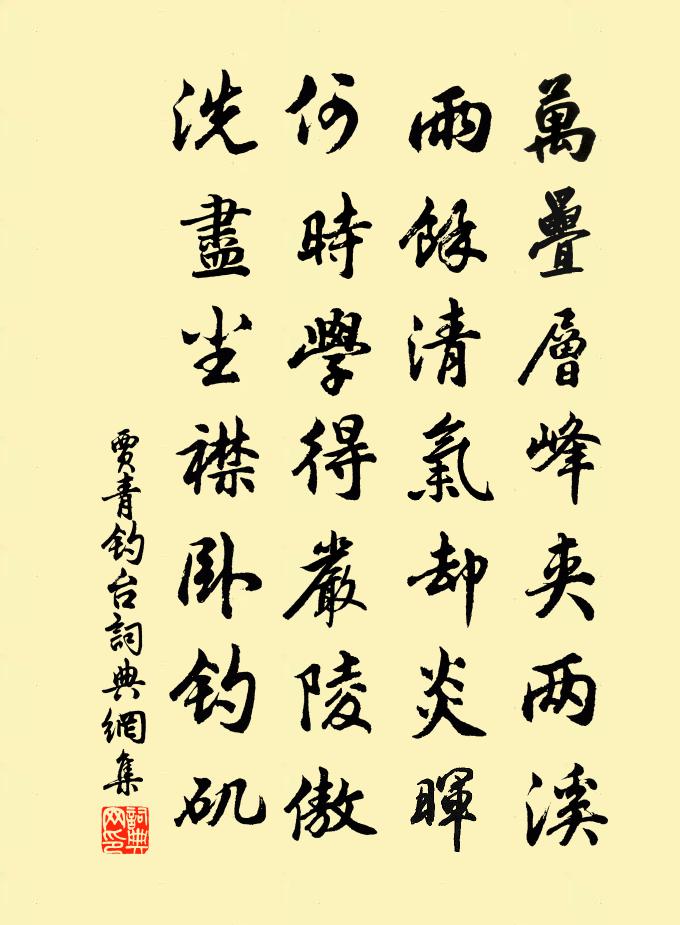 萬疊層峰夾两溪
雨餘清氣却炎暉
何時學得嚴陵傲
洗盡尘襟卧钓矶
賈青钓台詞典網集
詞典网印